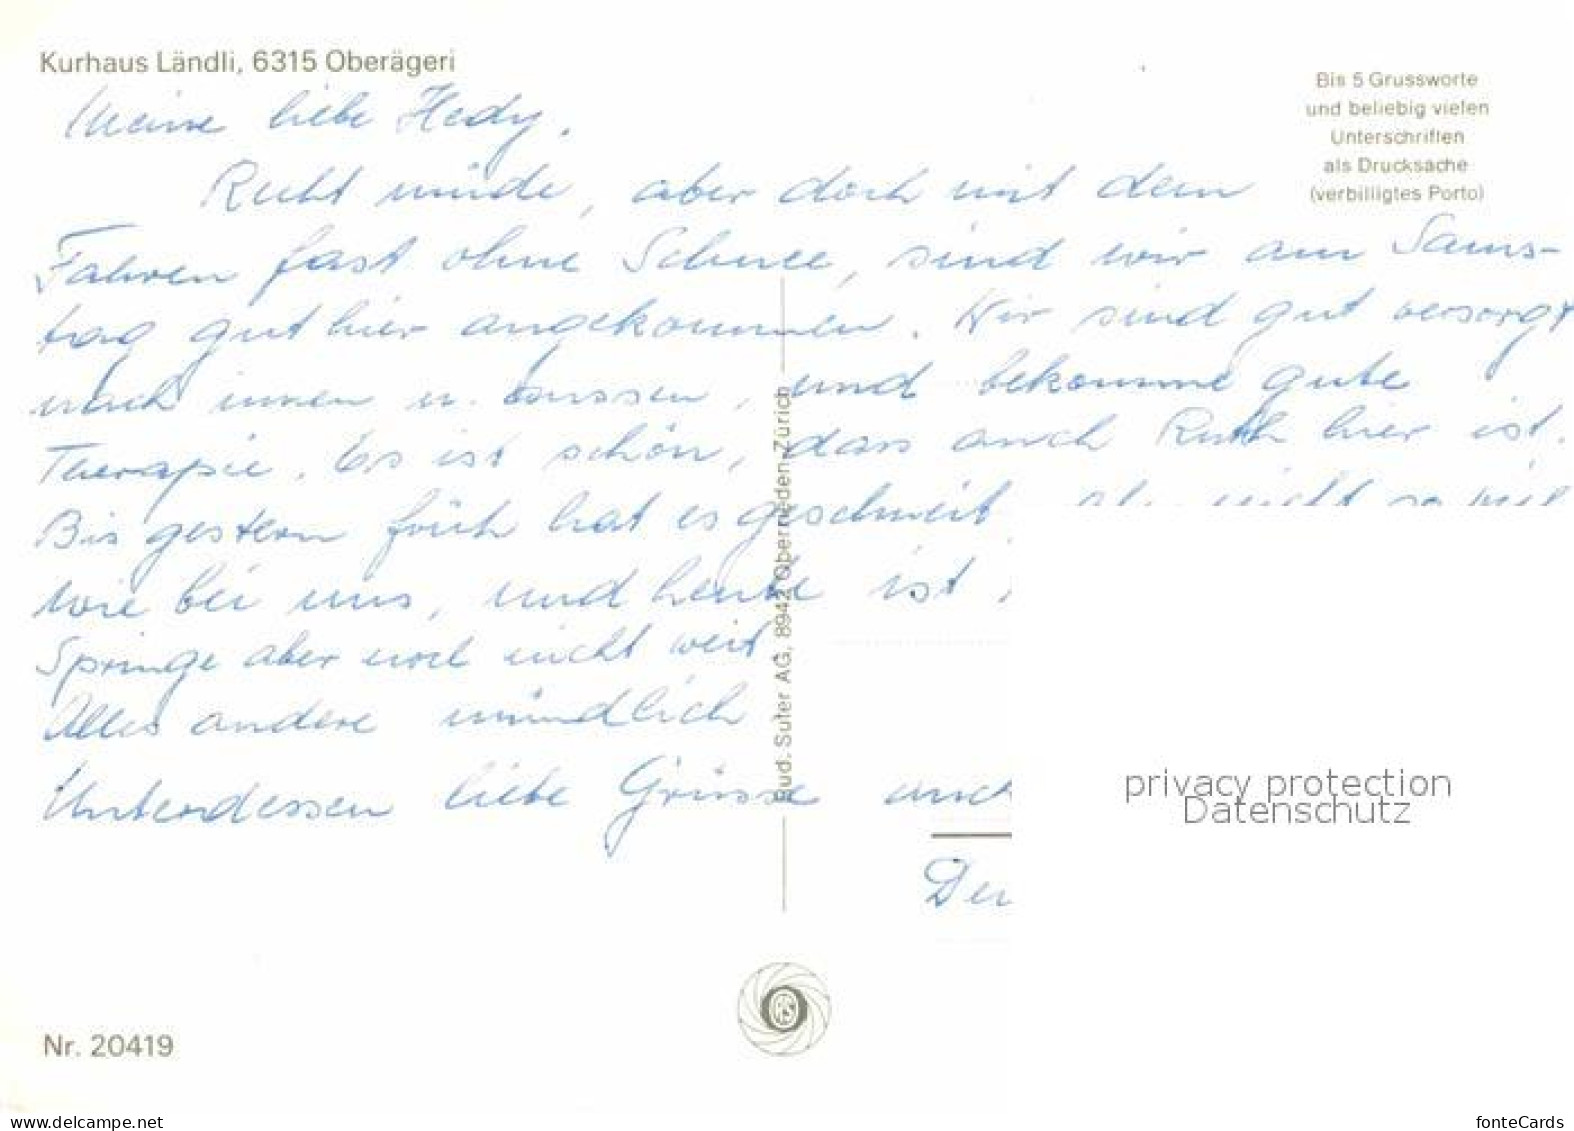 Kurhaus Ländli, 6315 Oberägeri
Bis 5 Grussworte
und beliebig vielen
Unterschriften
als Drucksache
(verbilligtes Porto)
Meine liebe Hedy,
Recht müde, aber doch mit dem
Fahren fast ohne Schnee, sind wir am Sams-
tag gut hier angekommen. Wir sind gut versorgt
nach innen u. aussen, und bekomme gute
Therapie. Es ist schön, dass auch Ruth hier ist.
Bis gestern früh hat es geschneit, nicht so viel
wie bei uns, und heute ist
Springe aber noch nicht weit.
Alles andere mündlich
Unterdessen liebe Grüsse auch
Rud. Suter AG, 8942 Oberrieden-Zürich
privacy protection
Datenschutz
Nr. 20419
www.delcampe.net
fonteCards